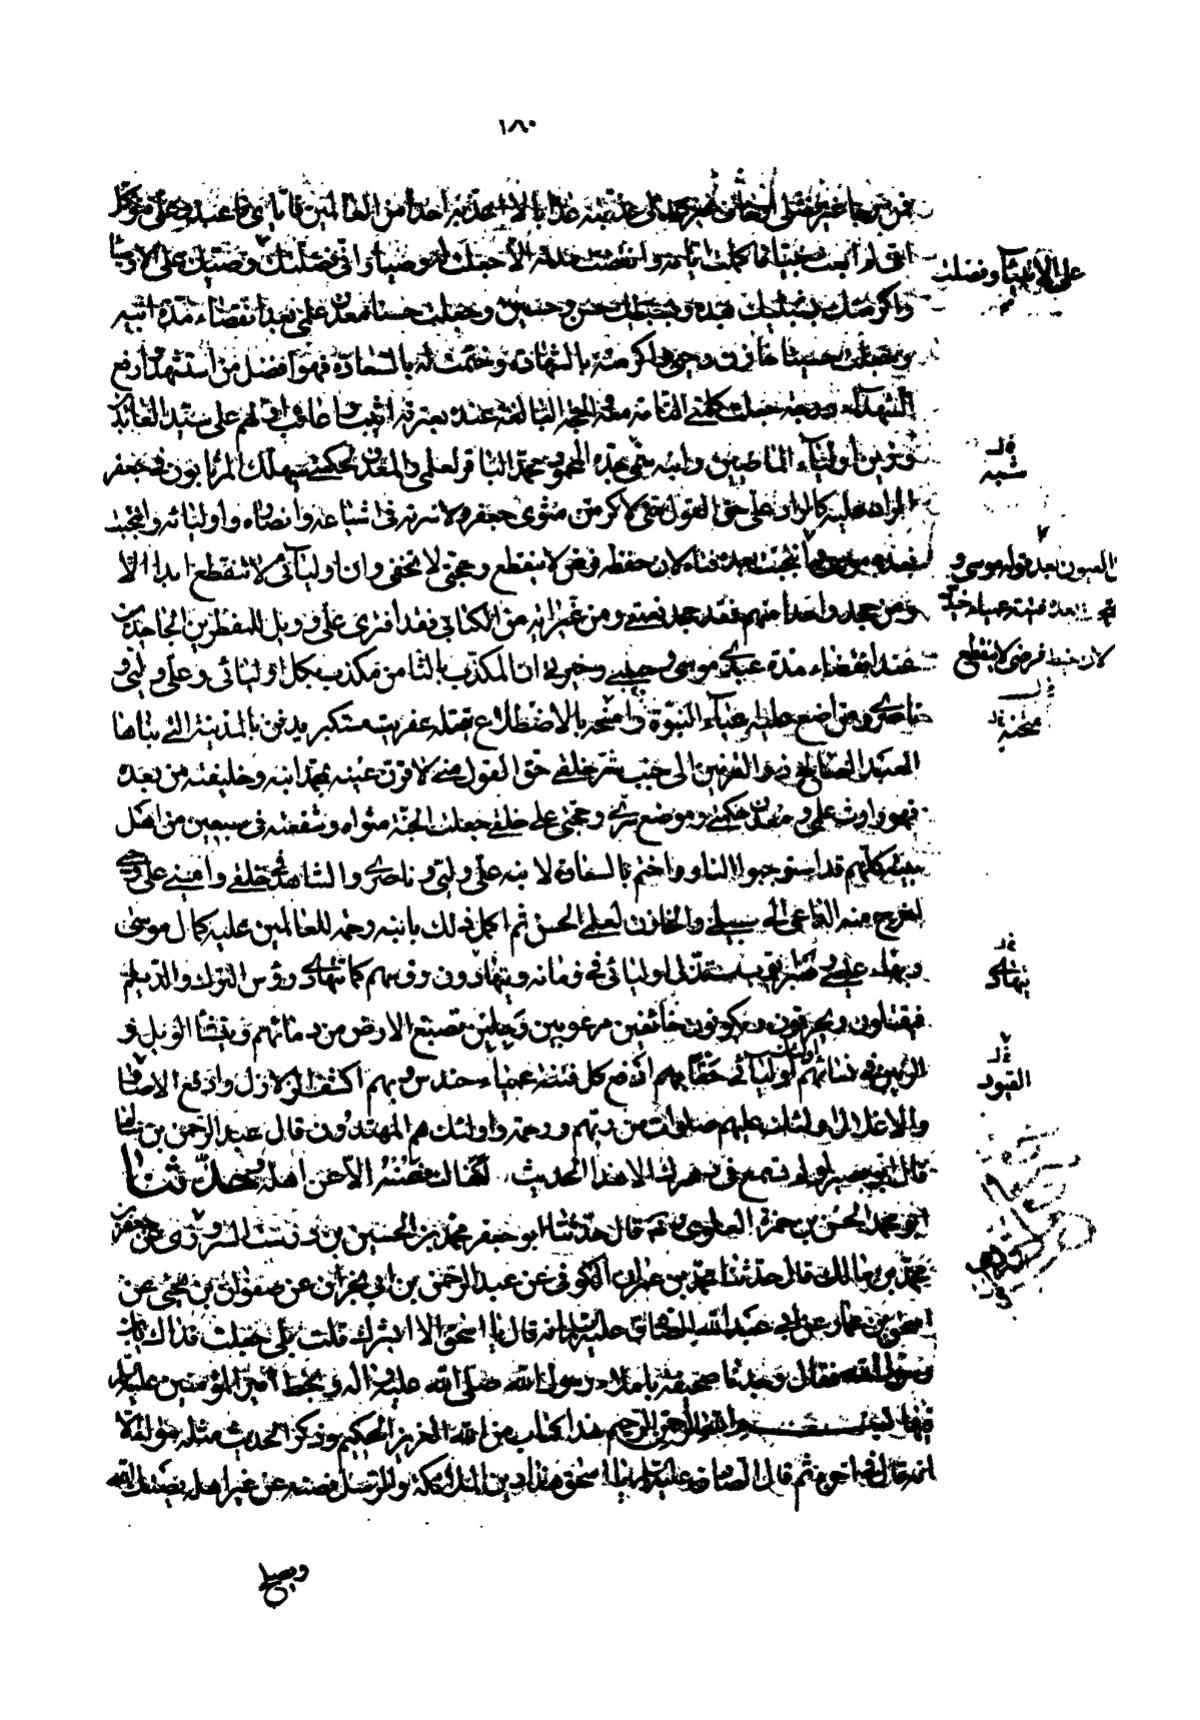 ١٨٠
فمن رجا غير فضلي او خاف غير عدلي عذبته عذابا لا اعذبه احدا من العالمين فاياي فاعبد وعلي فتوكل
اني لم ابعث نبيا فاكملت ايامه وانقضت مدته الا جعلت له وصيا واني فضلتك وفضلت وصيك على الاوصيا
على الأنبياء وفضلت
واكرمتك بشبليك بعده وبسبطيك حسن وحسين وجعلت حسنا معدن علمي بعد انقضاء مدة ابيه
وجعلت حسينا خازن وحيي واكرمته بالشهادة وختمت له بالسعادة فهو افضل من استشهد وارفع
الشهداء درجة جعلت كلمتي التامة معه والحجة البالغة عنده بعترته اثيب واعاقب اولهم علي سيد العابدين
وزين أوليآء الماضين وابنه جده المحمود محمد الباقر لعلمي والمعدن لحكمتي سيهلك المرتابون في جعفر
شبيه
الراد عليه كالراد علي حق القول مني لاكرمن مثوى جعفر ولاسرنه في اشياعه وانصاره واوليائه وانتجبت
بعده موسى وانتجبت بعده فتاه لان حفظه فرض لا ينقطع وحجتي لا تخفى وان اوليآئي لا تنقطع ابدا الا
بعد قوله موسى و
ومن جحد واحدا منهم فقد جحد نعمتي ومن غير اية من الكتابي فقد افترى علي وويل للمفترين الجاحدين
بعده فتنة عمياء
عند انقضاء مدة عبدي موسى وحبيبي وخيرتي ان المكذب بالثامن مكذب بكل اوليائي وعلي وليي و
لان خيط فرضي لا ينقطع
ناصري ومن اضع عليه اعبآء النبوة وامتحنه بالاضطلاع يقتله عفريت مستكبر يدفن بالمدينة التي بناها
العبد الصالح ذو القرنين الى جنب شر خلقي حق القول مني لاقرن عينه بمحمد ابنه وخليفته من بعده
فهو وارث علمي ومعدن حكمتي وموضع سري وحجتي على خلقي جعلت الجنة مثواه وشفعته في سبعين من اهل
بيته كلهم قد استوجبوا النار واختم بالسعادة لابنه علي وليي وناصري والشاهد في خلقي واميني على وحيي
اخرج منه الداعي الى سبيلي والخازن لعلمي الحسن ثم اكمل ذلك بابنه رحمة للعالمين عليه كمال موسى
وبهاء عيسى وصبر ايوب ستذل اوليائي في زمانه ويتهادون رؤسهم كما تتهادى رؤس الترك والديلم
يتهادى
فيقتلون ويحرقون ويكونون خائفين مرعوبين وجلين تصبغ الارض من دمائهم ويفشأ الويل و
الرنين في نسائهم اولئك اوليائي حقا بهم ادفع كل فتنة عمياء حندس وبهم اكشف الزلازل وادفع الاصار
القيود
والاغلال اولئك عليهم صلوات من ربهم ورحمة واولئك هم المهتدون قال عبد الرحمن بن سالم
قال ابو بصير لو لم تسمع في دهرك الا هذا الحديث لكفاك فصنه الا عن اهله وحدثنا
ابو محمد الحسن بن حمزة العلوي قال حدثنا ابو جعفر محمد بن الحسين بن درست السروي عن جعفر بن
محمد بن مالك قال حدثنا محمد بن عمران الكوفي عن عبد الرحمن بن ابي نجران عن صفوان بن يحيى عن
اسحق بن عمار عن ابي عبد الله الصادق عليه السلام انه قال يا اسحق الا ابشرك قلت بلى جعلت فداك يا بن
رسول الله فقال وجدنا صحيفة باملاء رسول الله صلى الله عليه واله وبخط امير المؤمنين عليه السلام
فيها بسم الله الرحمن الرحيم هذا كتاب من الله العزيز الحكيم وذكر الحديث مثله سواء الا
انه قال في اخره ثم قال الصادق عليه السلام يا اسحق هذا دين الملائكة والرسل فصنه عن غير اهله يصنك الله
ويصلح